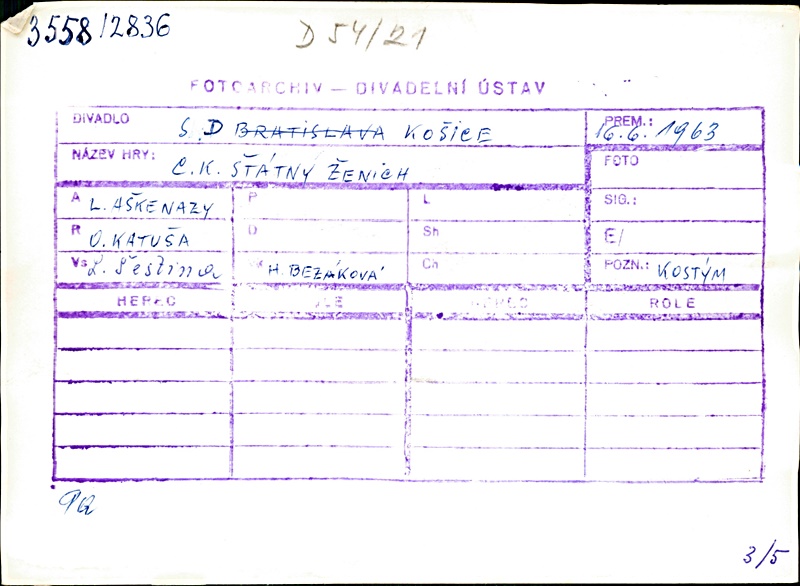 3558/2836
D 54/21
FOTOARCHIV — DIVADELNÍ ÚSTAV
DIVADLO S.D BRATISLAVA KOŠICE PREM.: 16.6. 1963
NÁZEV HRY: C.K. ŠTÁTNÝ ŽENICH FOTO
A L. AŠKENAZY P L SIG.:
R O. KATUŠA D Sh E/
Vs L. Šestina H. BEZÁKOVÁ Ch POZN.: KOSTÝM
HEREC ROLE HEREC ROLE
PQ
3/5